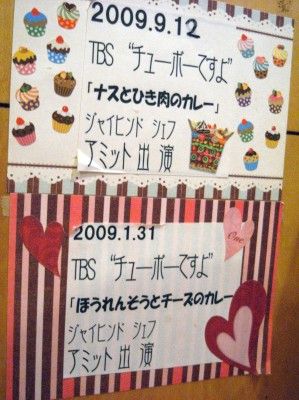 2009.9.12
TBS "チューボーですよ"
「ナスとひき肉のカレー」
ジャイヒンド シェフ
アミット出演
2009.1.31
TBS "チューボーですよ"
「ほうれんそうとチーズのカレー
ジャイヒンド シェフ
アミット出演
One